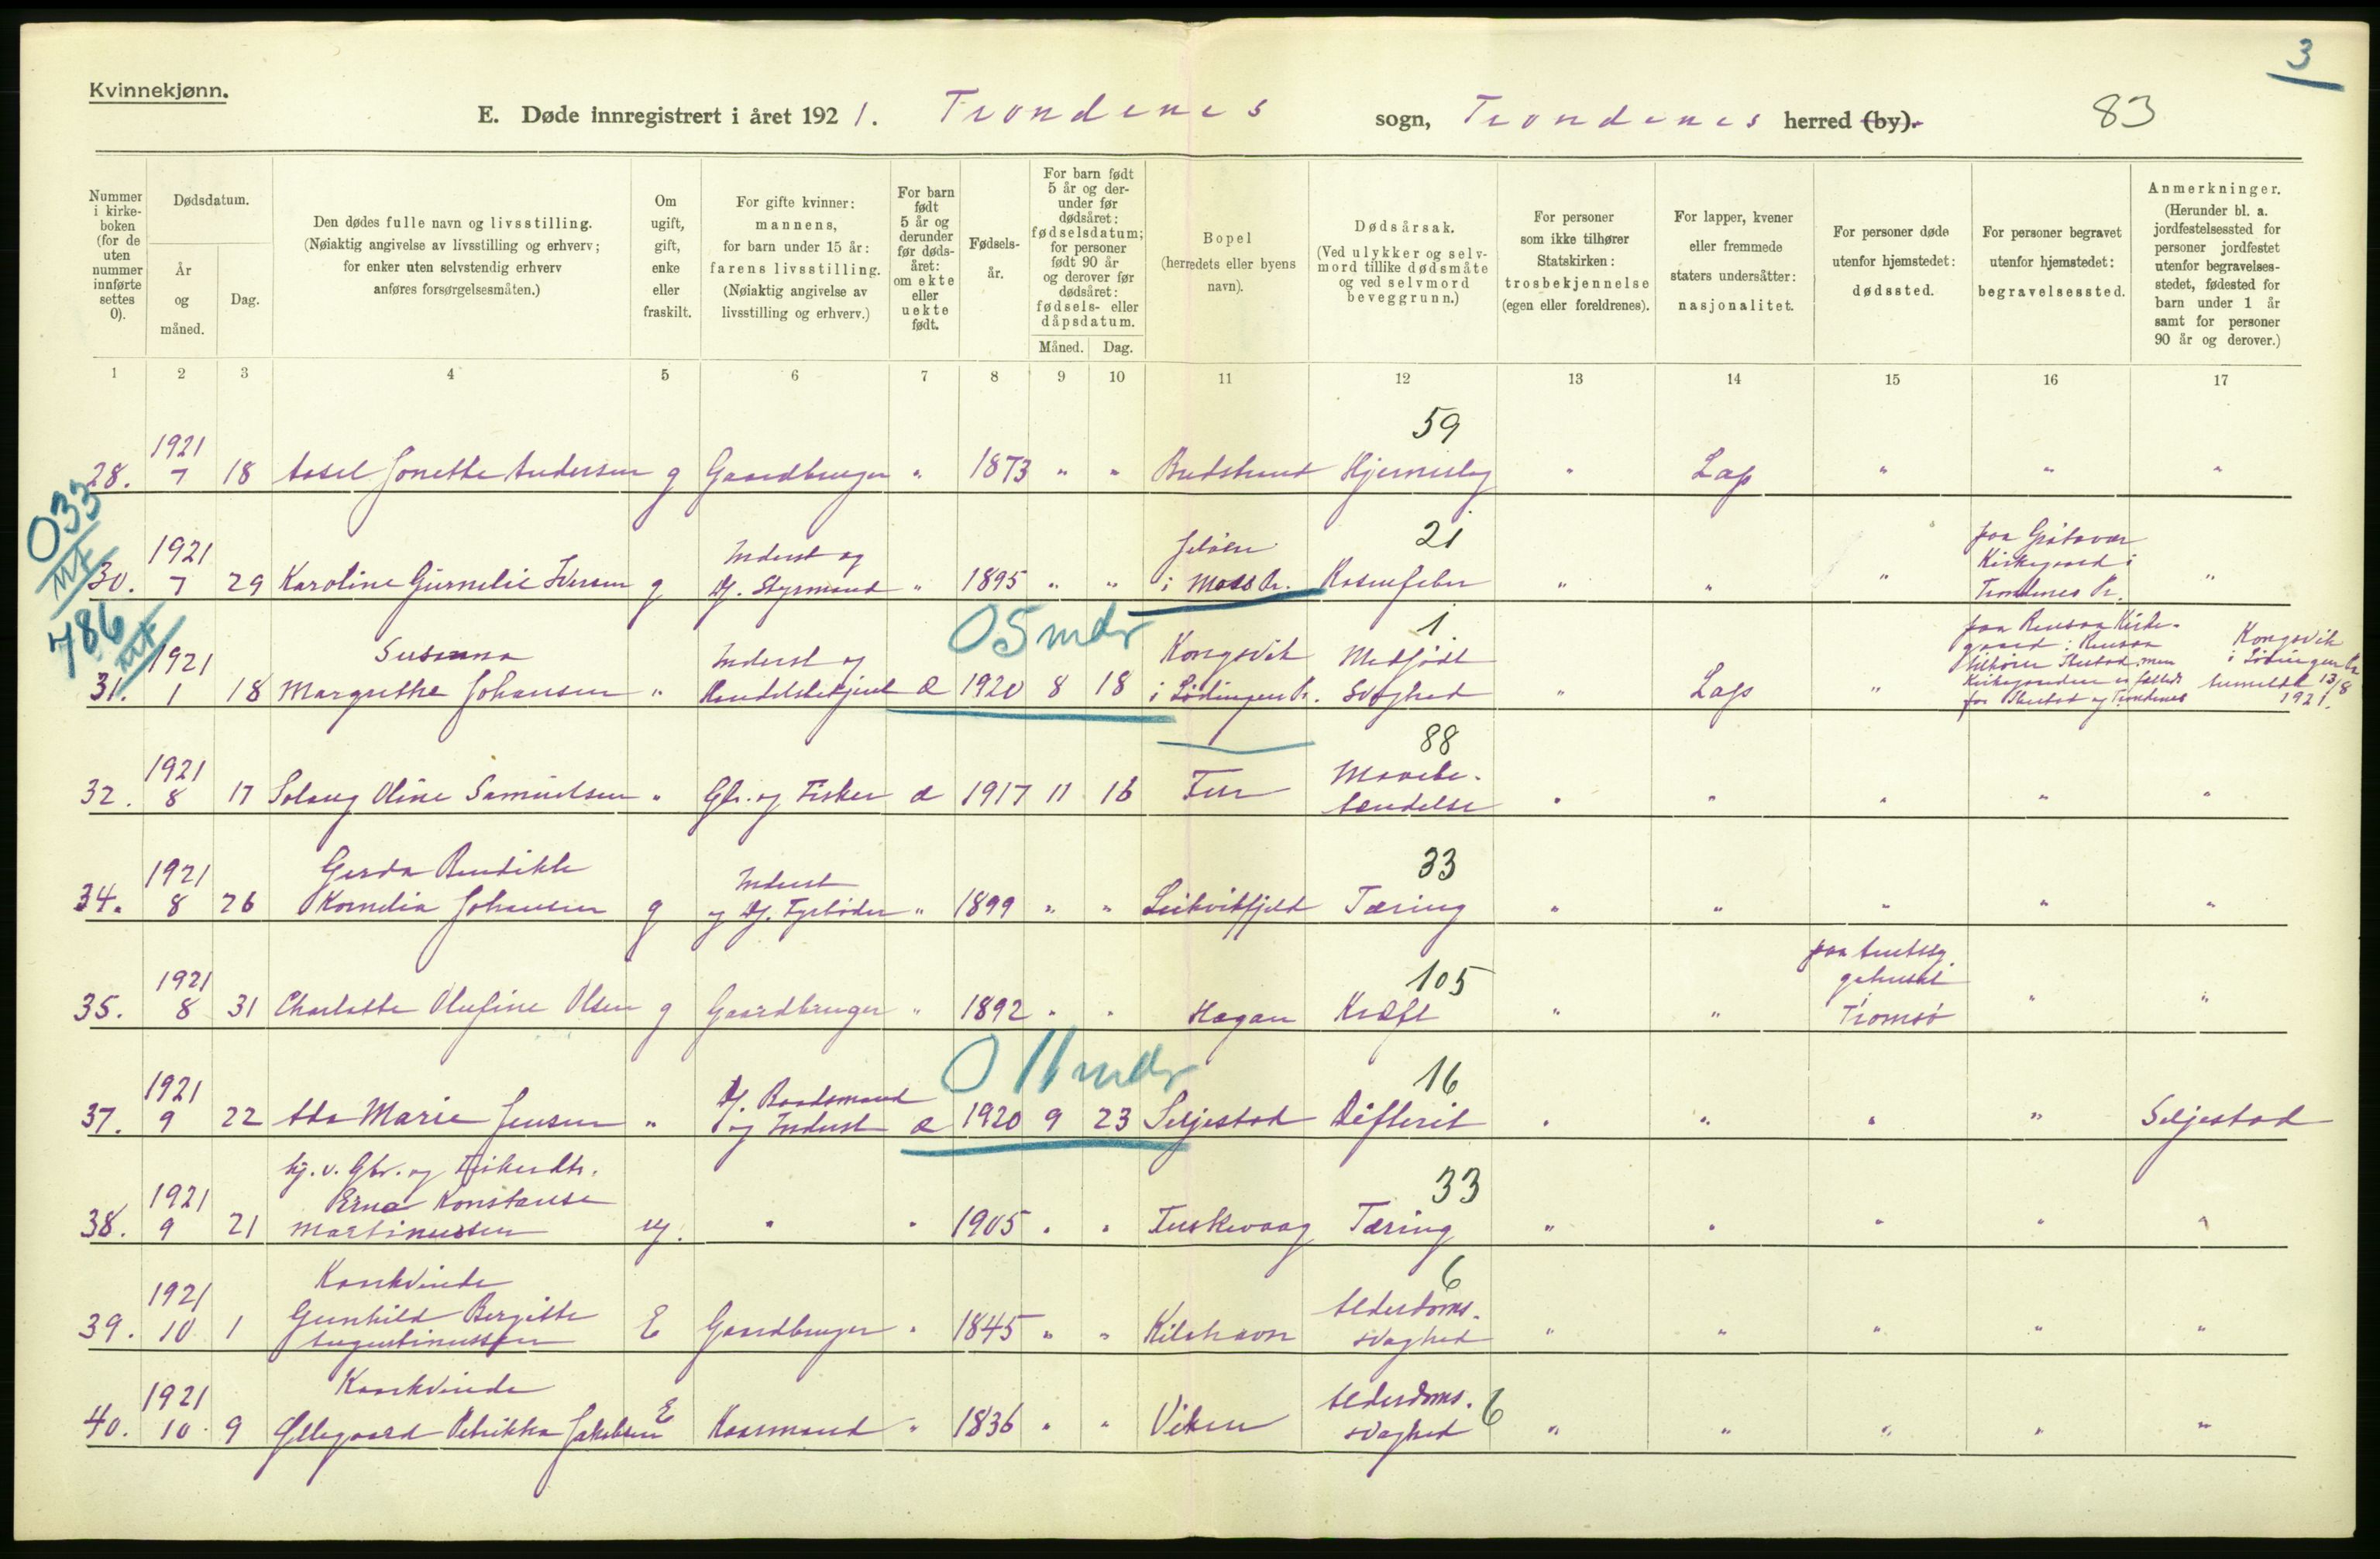 3
Kvinnekjønn.
E. Døde innregistrert i året 1921. Trondenes sogn, Trondenes herred (by).
83
Nummer i kirke-boken (for de uten nummer innførte settes 0).
Dødsdatum.
År og måned.
Dag.
Den dødes fulle navn og livsstilling.
(Nøiaktig angivelse av livsstilling og erhverv;
for enker uten selvstendig erhverv
anføres forsørgelsesmåten.)
Om ugift, gift, enke eller fraskilt.
For gifte kvinner:
mannens,
for barn under 15 år:
farens livsstilling.
(Nøiaktig angivelse av
livsstilling og erhverv.)
For barn født 5 år og derunder før døds-året: om ekte eller uekte født.
Fødsels-år.
For barn født
5 år og der-
under før
dødsåret:
fødselsdatum;
for personer
født 90 år
og derover før
dødsåret:
fødsels- eller
dåpsdatum.
Måned. Dag.
Bopel
(herredets eller byens
navn).
Dødsårsak.
(Ved ulykker og selv-
mord tillike dødsmåte
og ved selvmord
beveggrunn.)
For personer
som ikke tilhører
Statskirken:
trosbekjennelse
(egen eller foreldrenes).
For lapper, kvener
eller fremmede
staters undersåtter:
nasjonalitet.
For personer døde
utenfor hjemstedet:
dødssted.
For personer begravet
utenfor hjemstedet:
begravelsessted.
Anmerkninger.
(Herunder bl. a.
jordfestelsessted for
personer jordfestet
utenfor begravelses-
stedet, fødested for
barn under 1 år
samt for personer
90 år og derover.)
1 2 3 4 5 6 7 8 9 10 11 12 13 14 15 16 17
1921 59
28. 7 18 Aasel Jonette Andersen g Gaardbruger " 1873 " " Hjerneslag " Lap " " "
033
1921 Inderst og 21 paa Gråtavær
Kirkegaard i
30. 7 29 Karoline g Styrmand " 1895 " " i Moss Pr. " " " Trondenes Pr. "
786
0 5 mdr
1921 Susanna Inderst og Kongsvik 1 Medfødt
31. 1 18 Margrethe Johansen " Æ 1920 8 18 i Lødingen Pr. Svaghed " Lap "
Kongsvik
i Lødingen Pr.
anmeldt 13/8
1921.
1921 88 Mavebe-
32. 8 17 Solaug Oline Samuelsen " Gbr. og Fisker Æ 1917 11 16 tændelse " " " " "
1921 Gerda Bendikte Inderst 33
34. 8 26 Kornelia Johansen g og Fyrbøder " 1899 " " Tæring " " " " "
1921 105 paa Amtssy-
gehuset
35. 8 31 Charlotte Olufine Olsen g Gaardbruger " 1892 " " Hagan Kræft " " Tromsø " "
0 11 mdr
1921 Baadsmand 16
37. 9 22 Ada Marie Jensen " og Inderst Æ 1920 9 23 Seljestad Difterit " " " " Seljestad
hj. v. Gbr. og Fiskerdtr.
1921 Erna Konstanse 33
38. 9 21 Martinussen ug. " " 1905 " " Tuskevaag Tæring " " " " "
Kaarkvinde
1921 Gunhild Bergitte 6 Alderdoms-
39. 10 1 Augustinussen E Gaardbruger " 1845 " " Kilshavn svaghed " " " " "
Kaarkvinde
1921 Alderdoms-
40. 10 9 Ellegaard Petrikka Jakobsen E Kaarmand " 1836 " " Viken svaghed 6 " " " " "